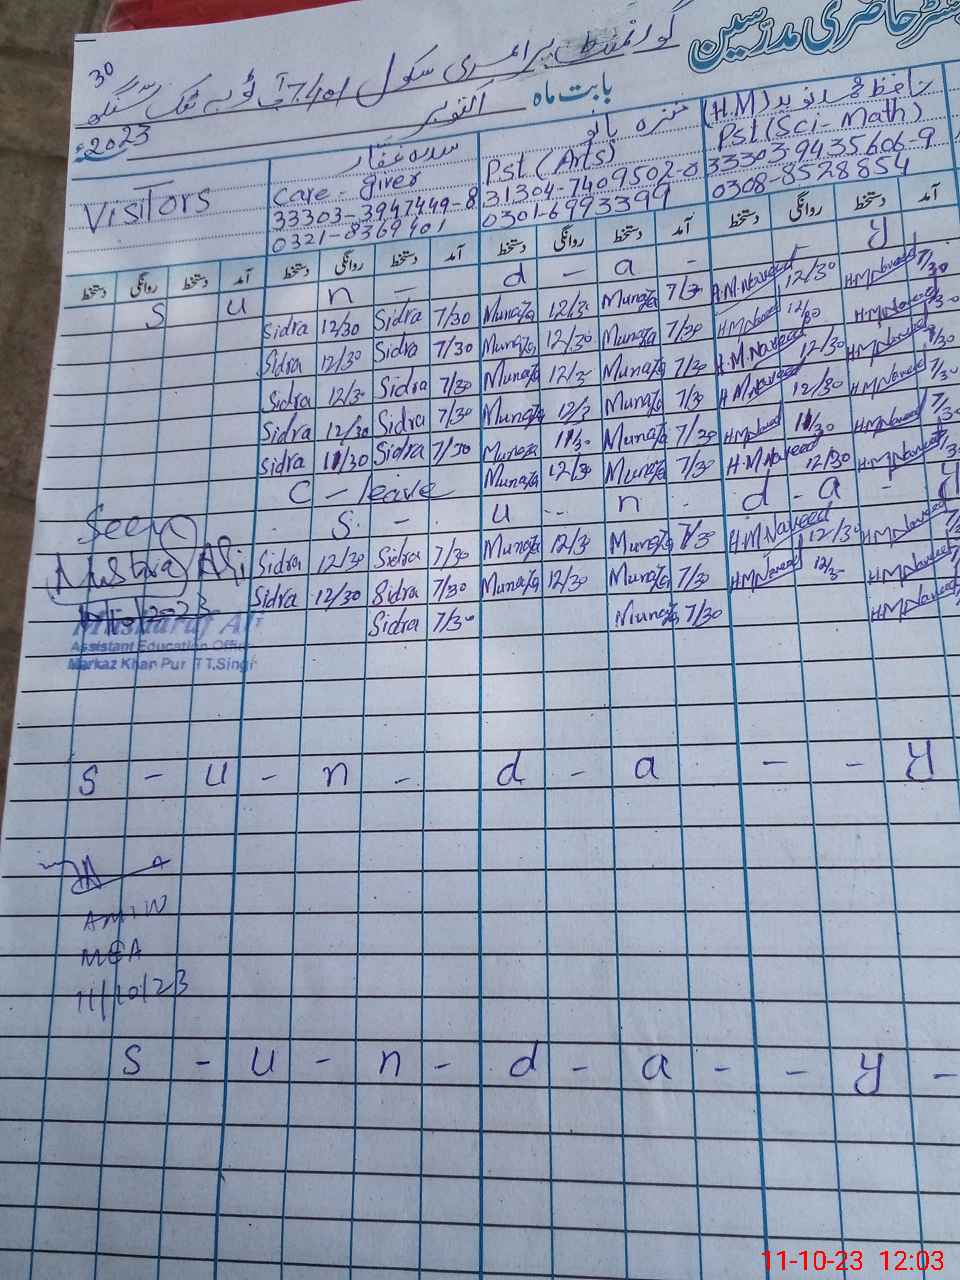 رجسٹر حاضری مدرّسین
30
گورنمنٹ پرائمری سکول
بابت ماہ اکتوبر
2023
VISITORS
سدرہ غفار
Care-giver
33303-3947449-8
0321-8369401
منزہ بانو
Pst (Arts)
31304-7409502-0
0301-6993399
(H.M)
Pst (Sci-Math)
33303-9435606-9
0308-8528854
دستخط روانگی دستخط آمد دستخط روانگی دستخط آمد دستخط روانگی دستخط آمد دستخط روانگی دستخط آمد
S u n - d - a - y
Sidra 12/30 Sidra 7/30 Munaza 12/30 Munaza 7/30 H.M.Naveed 12/30 H.M.Naveed 7/30
Sidra 12/30 Sidra 7/30 Munaza 12/30 Munaza 7/30 H.M.Naveed 12/30 H.M.Naveed 7/30
Sidra 12/30 Sidra 7/30 Munaza 12/30 Munaza 7/30 H.M.Naveed 12/30 H.M.Naveed 7/30
Sidra 12/30 Sidra 7/30 Munaza 12/30 Munaza 7/30 H.M.Naveed 12/30 H.M.Naveed 7/30
Sidra 11/30 Sidra 7/30 Munaza 11/30 Munaza 7/30 H.M.Naveed 11/30 H.M.Naveed 7/30
C - leave Munaza 12/30 Munaza 7/30 H.M.Naveed 12/30 H.M.Naveed 7/30
S - u - n - d - a - y
Seen
Sidra 12/30 Sidra 7/30 Munaza 12/30 Munaza 7/30 H.M.Naveed 12/30 H.M.Naveed 7/30
Sidra 12/30 Sidra 7/30 Munaza 12/30 Munaza 7/30 H.M.Naveed 12/30 H.M.Naveed
Sidra 7/30 Munaza 7/30 H.M.Naveed
Musharaf Ali
Assistant Education Officer
Markaz Khan Pur T T.Singh
S - u - n - d - a - - y
AMIN
MEA
11/10/23
S - u - n - d - a - - y -
11-10-23 12:03